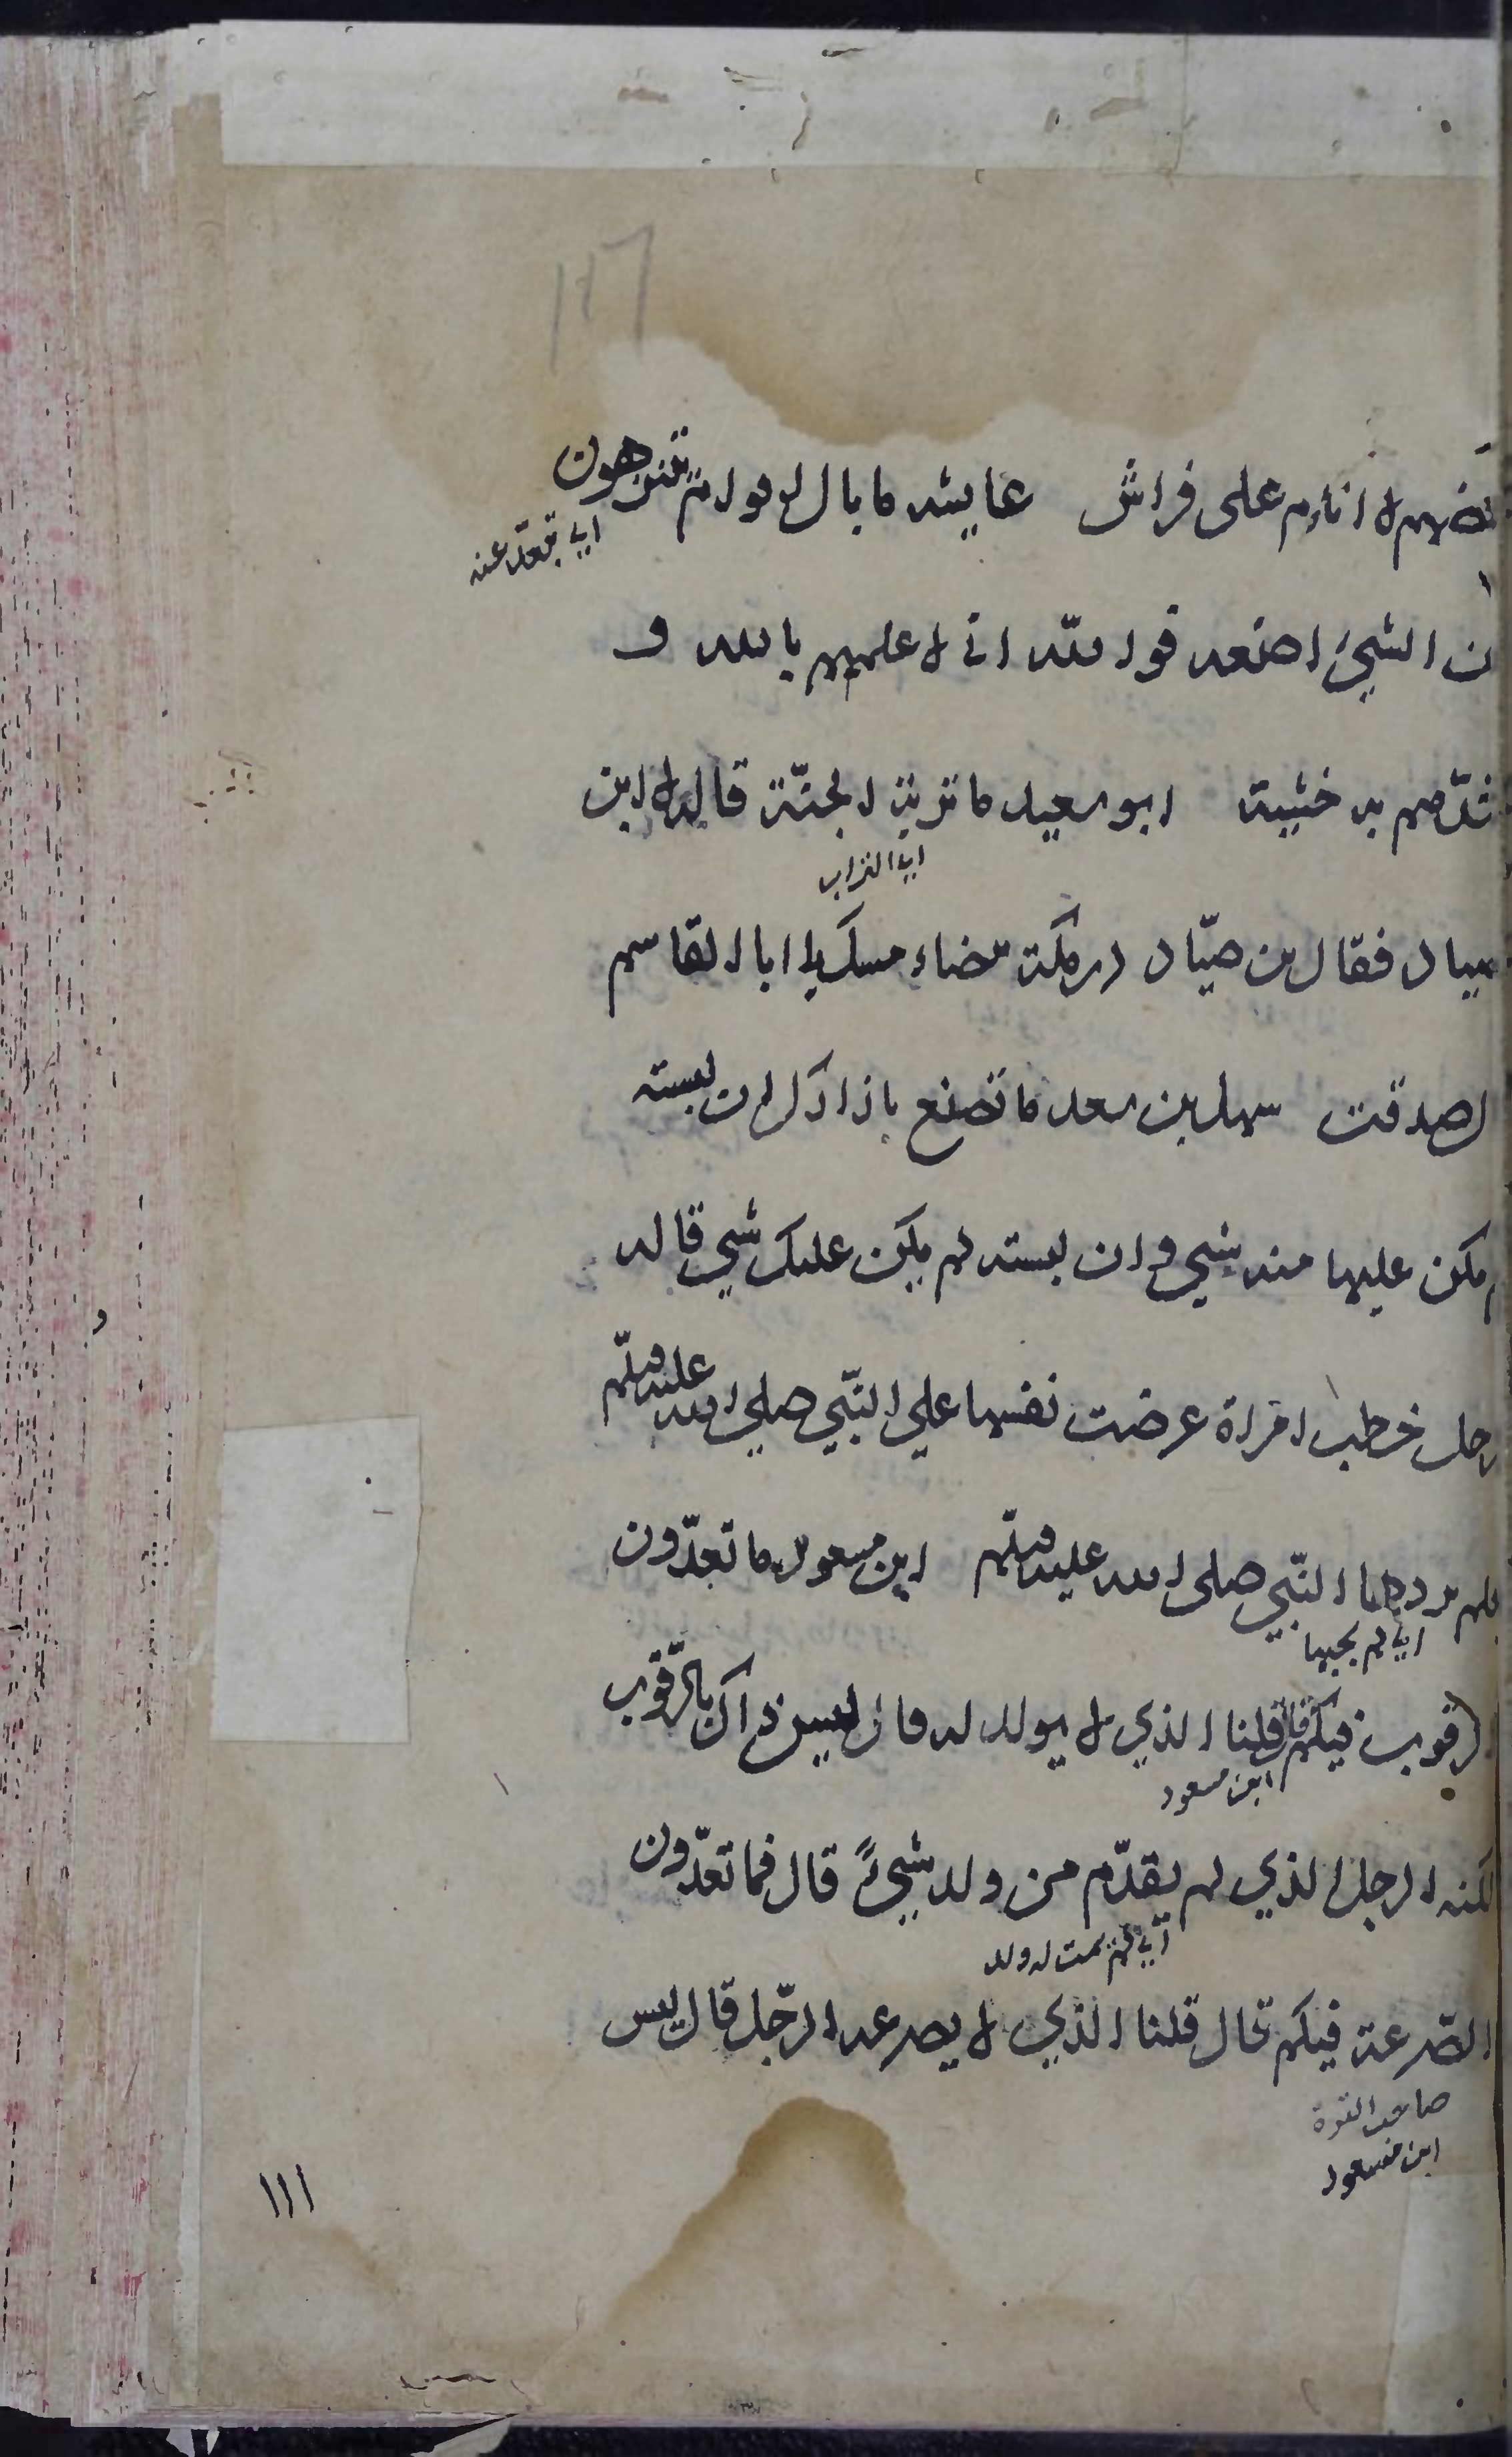 بعضهم لا انام على فراش عايشه ما بال اقوام يتنزهون
اي تبعد عنه
ن الشيء اصنعه فوالله اني لاعلمهم بالله و
شدهم له خشية ابو سعيد ما تربة الجنّة قاله لابن
اي التراب
صياد فقال بن صيّاد درمكة بيضاء مسك يا ابا القاسم
ل صدقت سهل بن سعد ما تصنع بازارك ان لبسته
م يكن عليها منه شي وان لبسته لم يكن عليك شي قاله
رجل خطب امراة عرضت نفسها علي النبّي صلي الله عليه وسلّم
فلم يردها النبّي صلى الله عليه وسلّم ابن مسعود ما تعدّون
اي لم يجبها
الرقوب فيكم قال قلنا الذي لا يولد له قال ليس ذاك بالرّقوب
ابن مسعود
لكنه الرجل الذي لم يقدّم من ولده شيءً قال فما تعدّون
اي لم يمت له ولد
الصّرعة فيكم قال قلنا الذي لا يصرعه الرجّل قال ليس
صاحب القوة
ابن مسعود
١١١